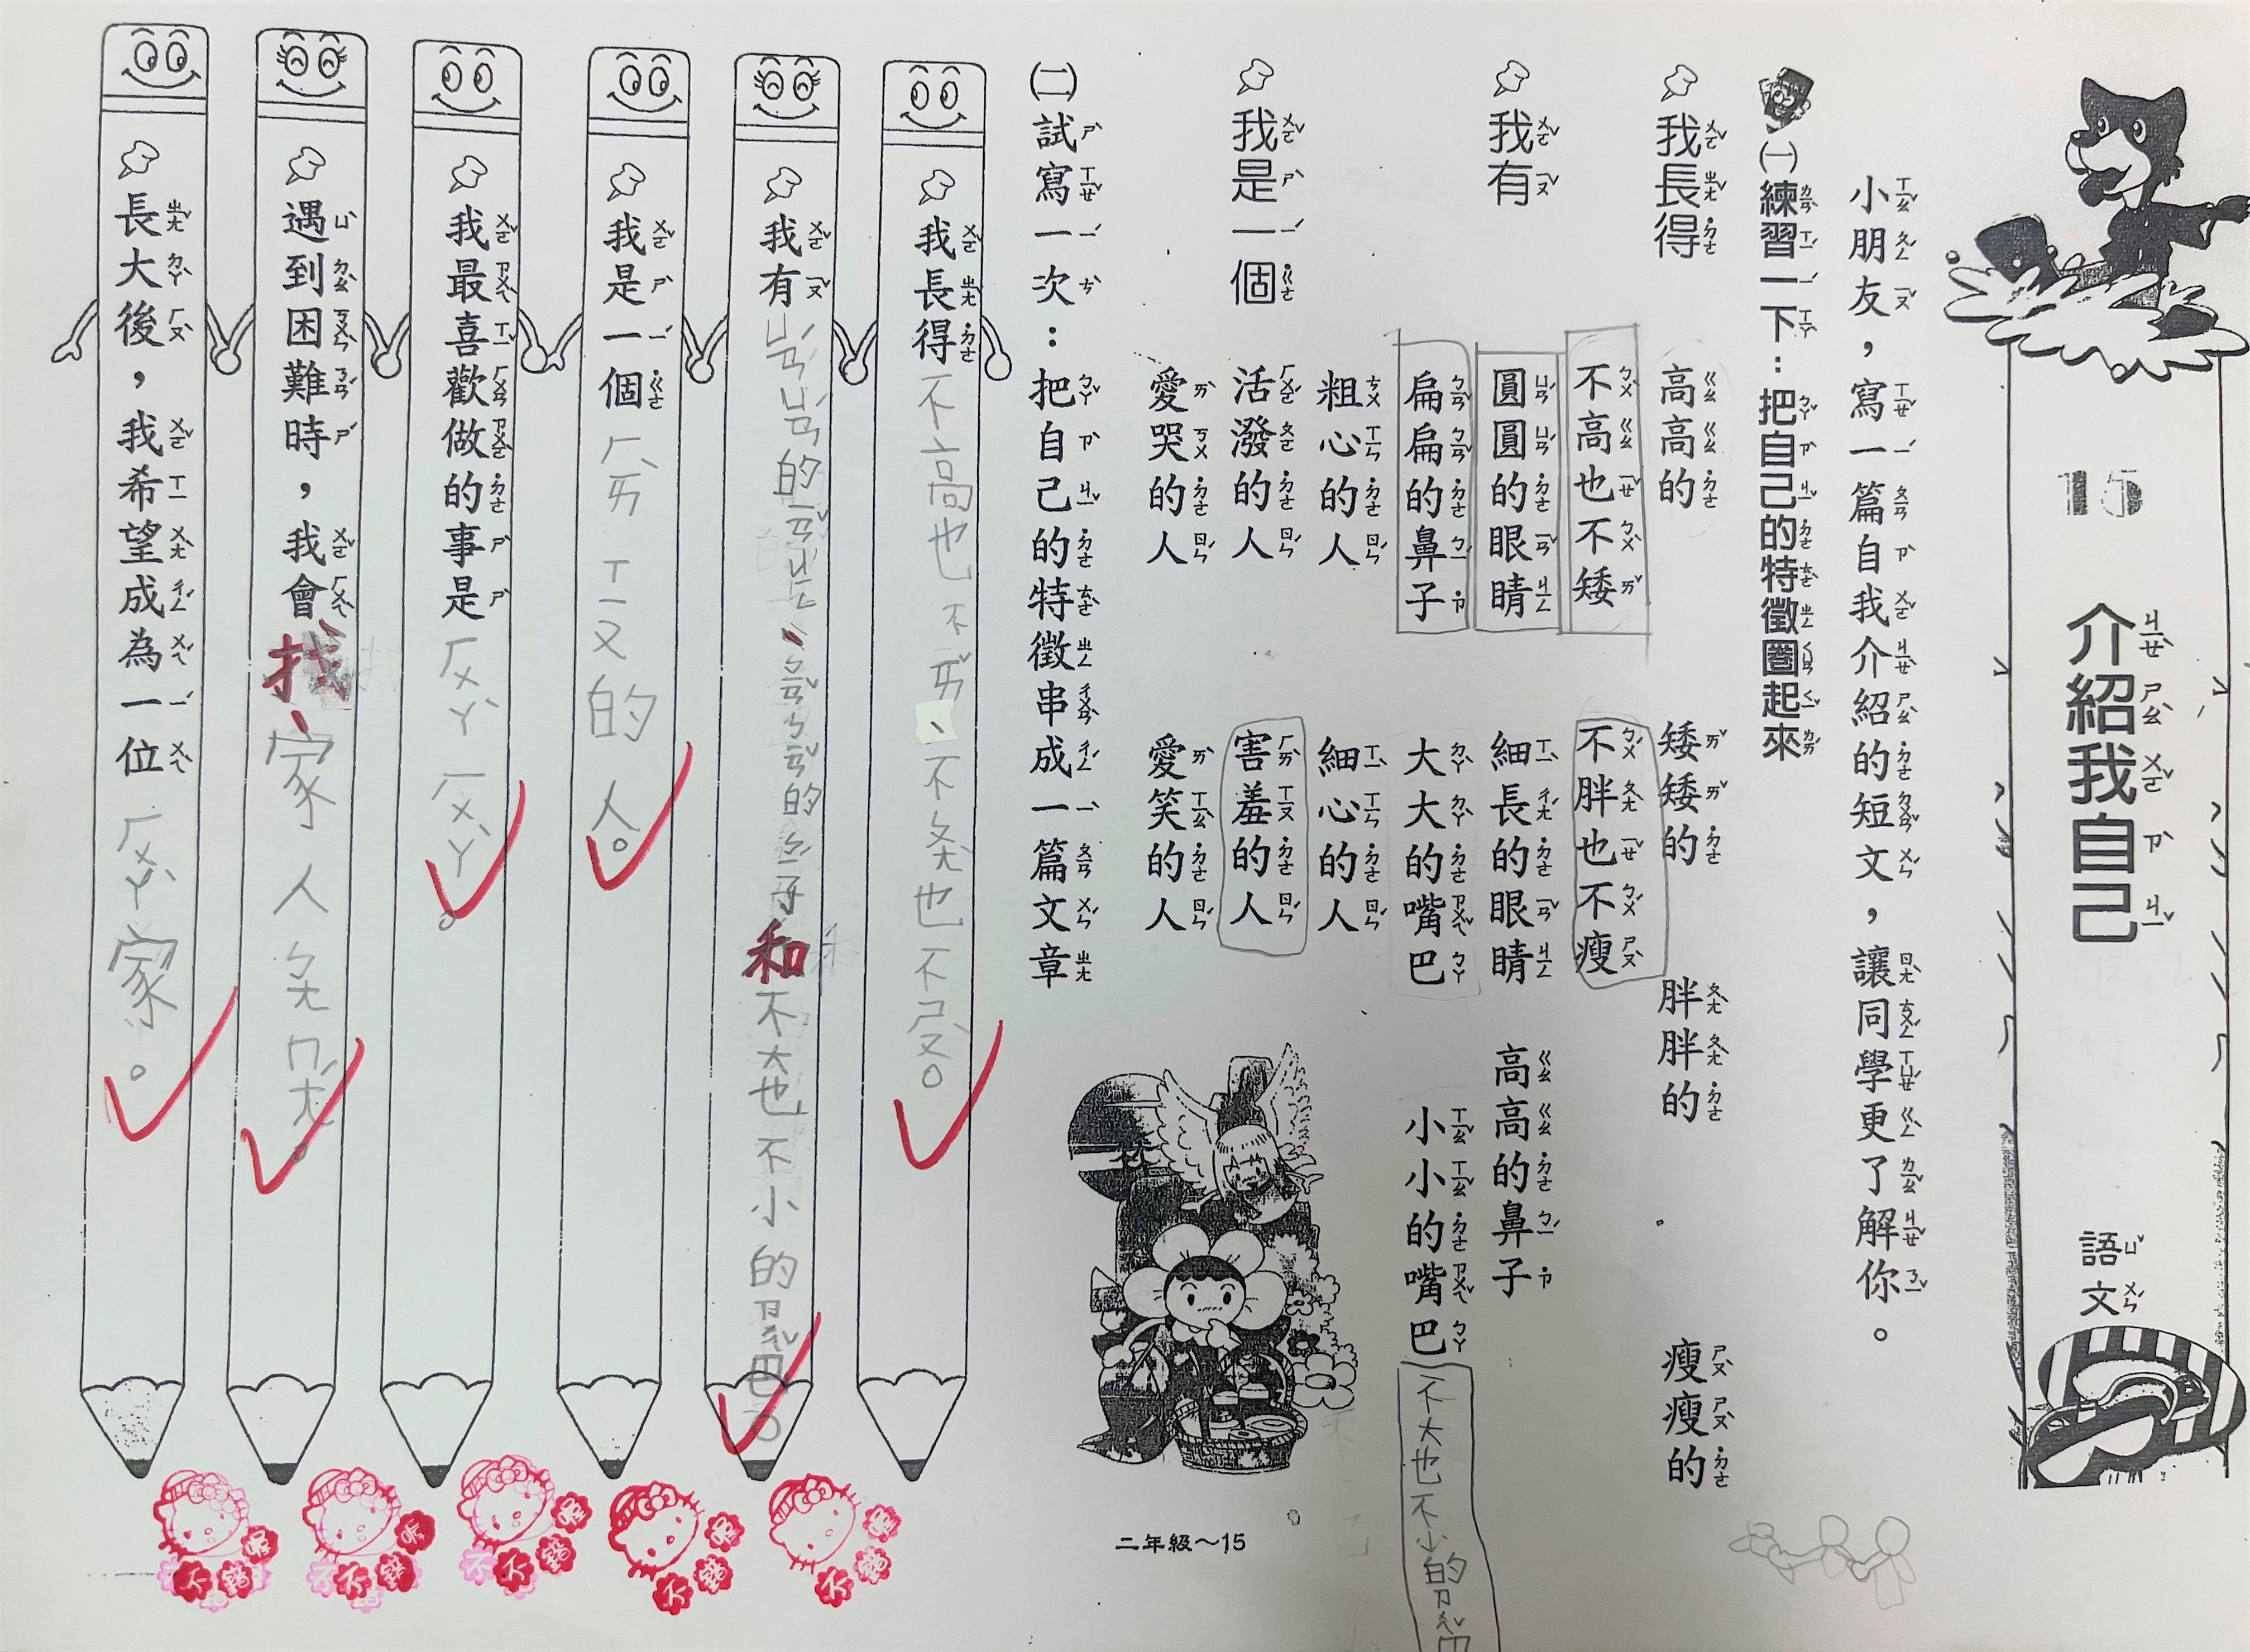 15 介紹我自己 語文
小朋友，寫一篇自我介紹的短文，讓同學更了解你。
㈠練習一下：把自己的特徵圈起來
我長得 高高的 矮矮的 胖胖的 瘦瘦的
不高也不矮 不胖也不瘦
我有 圓圓的眼睛 細長的眼睛 高高的鼻子
扁扁的鼻子 大大的嘴巴 小小的嘴巴 不大也不小的ㄗㄨㄟˇ巴
粗心的人 細心的人
我是一個 活潑的人 害羞的人
愛哭的人 愛笑的人
㈡試寫一次：把自己的特徵串成一篇文章
我長得不高也不ㄞˇ、不ㄆㄤˋ也不ㄕㄡˋ。
我有ㄩㄢˊㄩㄢˊ的ㄧㄢˇㄐㄧㄥ、ㄅㄧㄢˇㄅㄧㄢˇ的ㄅㄧˊ子和不大也不小的ㄗㄨㄟˇ巴。
我是一個ㄏㄞˋㄒㄧㄡ的人。
我最喜歡做的事是ㄏㄨㄚˋㄏㄨㄚˋ。
遇到困難時，我會找家人ㄅㄤㄇㄤˊ。
長大後，我希望成為一位ㄏㄨㄚˋ家。
二年級～15